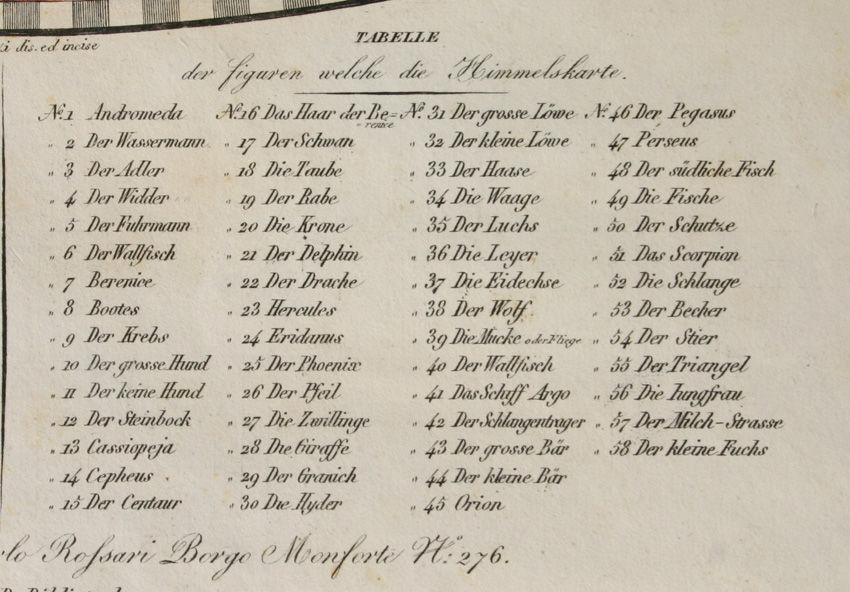 i dis. ed incise
TABELLE
der figuren welche die Himmelskarte.
Nº. 1 Andromeda
„ 2 Der Wassermann
„ 3 Der Adler
„ 4 Der Widder
„ 5 Der Fuhrmann
„ 6 Der Wallfisch
„ 7 Berenice
„ 8 Bootes
„ 9 Der Krebs
„ 10 Der grosse Hund
„ 11 Der keine Hund
„ 12 Der Steinbock
„ 13 Cassiopeja
„ 14 Cepheus
„ 15 Der Centaur
Nº. 16 Das Haar der Be=
=renice
„ 17 Der Schwan
„ 18 Die Taube
„ 19 Der Rabe
„ 20 Die Krone
„ 21 Der Delphin
„ 22 Der Drache
„ 23 Hercules
„ 24 Eridanus
„ 25 Der Phoenix
„ 26 Der Pfeil
„ 27 Die Zwillinge
„ 28 Die Giraffe
„ 29 Der Granich
„ 30 Die Hyder
Nº. 31 Der grosse Löwe
„ 32 Der kleine Löwe
„ 33 Der Haase
„ 34 Die Waage
„ 35 Der Luchs
„ 36 Die Leyer
„ 37 Die Eidechse
„ 38 Der Wolf
„ 39 Die Mucke oder Fliege
„ 40 Der Wallfisch
„ 41 Das Schiff Argo
„ 42 Der Schlangentrager
„ 43 Der grosse Bär
„ 44 Der kleine Bär
„ 45 Orion
Nº. 46 Der Pegasus
„ 47 Perseus
„ 48 Der südliche Fisch
„ 49 Die Fische
„ 50 Der Schutze
„ 51 Das Scorpion
„ 52 Die Schlange
„ 53 Der Becher
„ 54 Der Stier
„ 55 Der Triangel
„ 56 Die Iungfrau
„ 57 Der Milch-Strasse
„ 58 Der kleine Fuchs
rlo Roſsari Borgo Monforte Nº: 276.